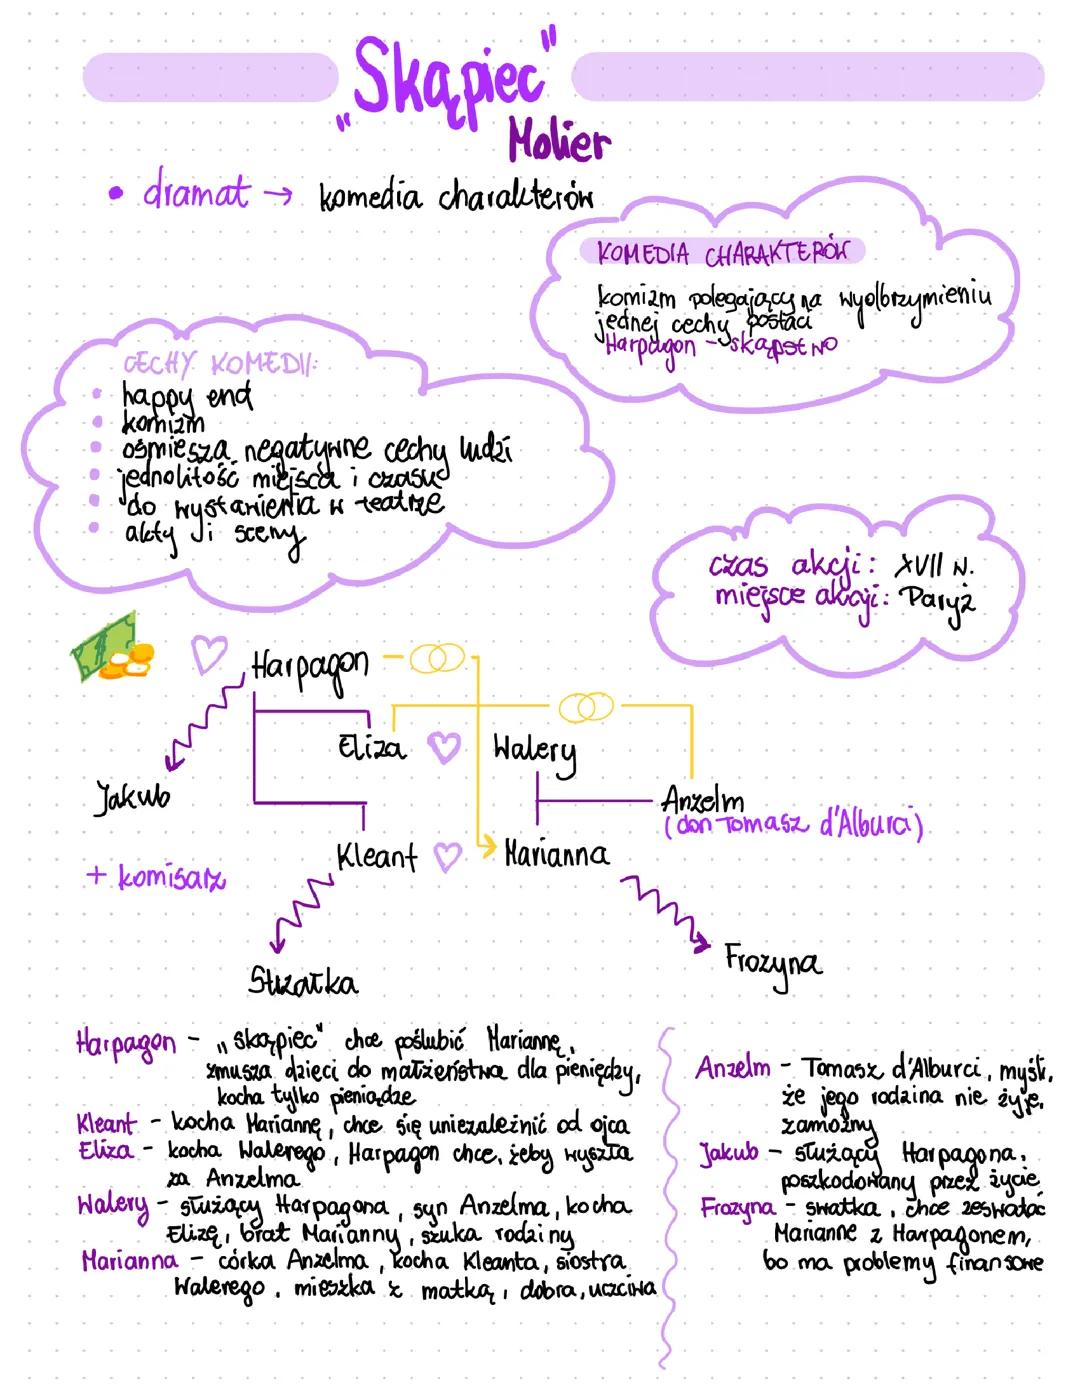 „Skąpiec"
Molier
• dramat → komedia charakterów
KOMEDIA CHARAKTERÓW
komizm polegający na wyolbrzymieniu
jednej cechy postaci
Harpagon - skąpstwo
CECHY KOMEDII:
• happy end
• komizm
• ośmiesza negatywne cechy ludzi
• jednolitość miejsca i czasu
• do wystawienia w teatrze
• akty i sceny
czas akcji: XVII w.
miejsce akcji: Paryż
Harpagon
Eliza
Walery
Jakub
Anzelm
(don Tomasz d'Alburci)
Kleant
Marianna
+ komisarz
Frozyna
Strzałka
Harpagon - „skąpiec" chce poślubić Mariannę,
zmusza dzieci do małżeństwa dla pieniędzy,
kocha tylko pieniądze
Kleant - kocha Mariannę, chce się uniezależnić od ojca
Eliza - kocha Walerego, Harpagon chce, żeby wyszła
za Anzelma
Walery - służący Harpagona, syn Anzelma, kocha
Elizę, brat Marianny, szuka rodziny
Marianna - córka Anzelma, kocha Kleanta, siostra
Walerego, mieszka z matką, dobra, uczciwa
Anzelm - Tomasz d'Alburci, myśli,
że jego rodzina nie żyje,
zamożny
Jakub - służący Harpagona,
poszkodowany przez życie
Frozyna - swatka, chce zeswatać
Marianne z Harpagonem,
bo ma problemy finansowe